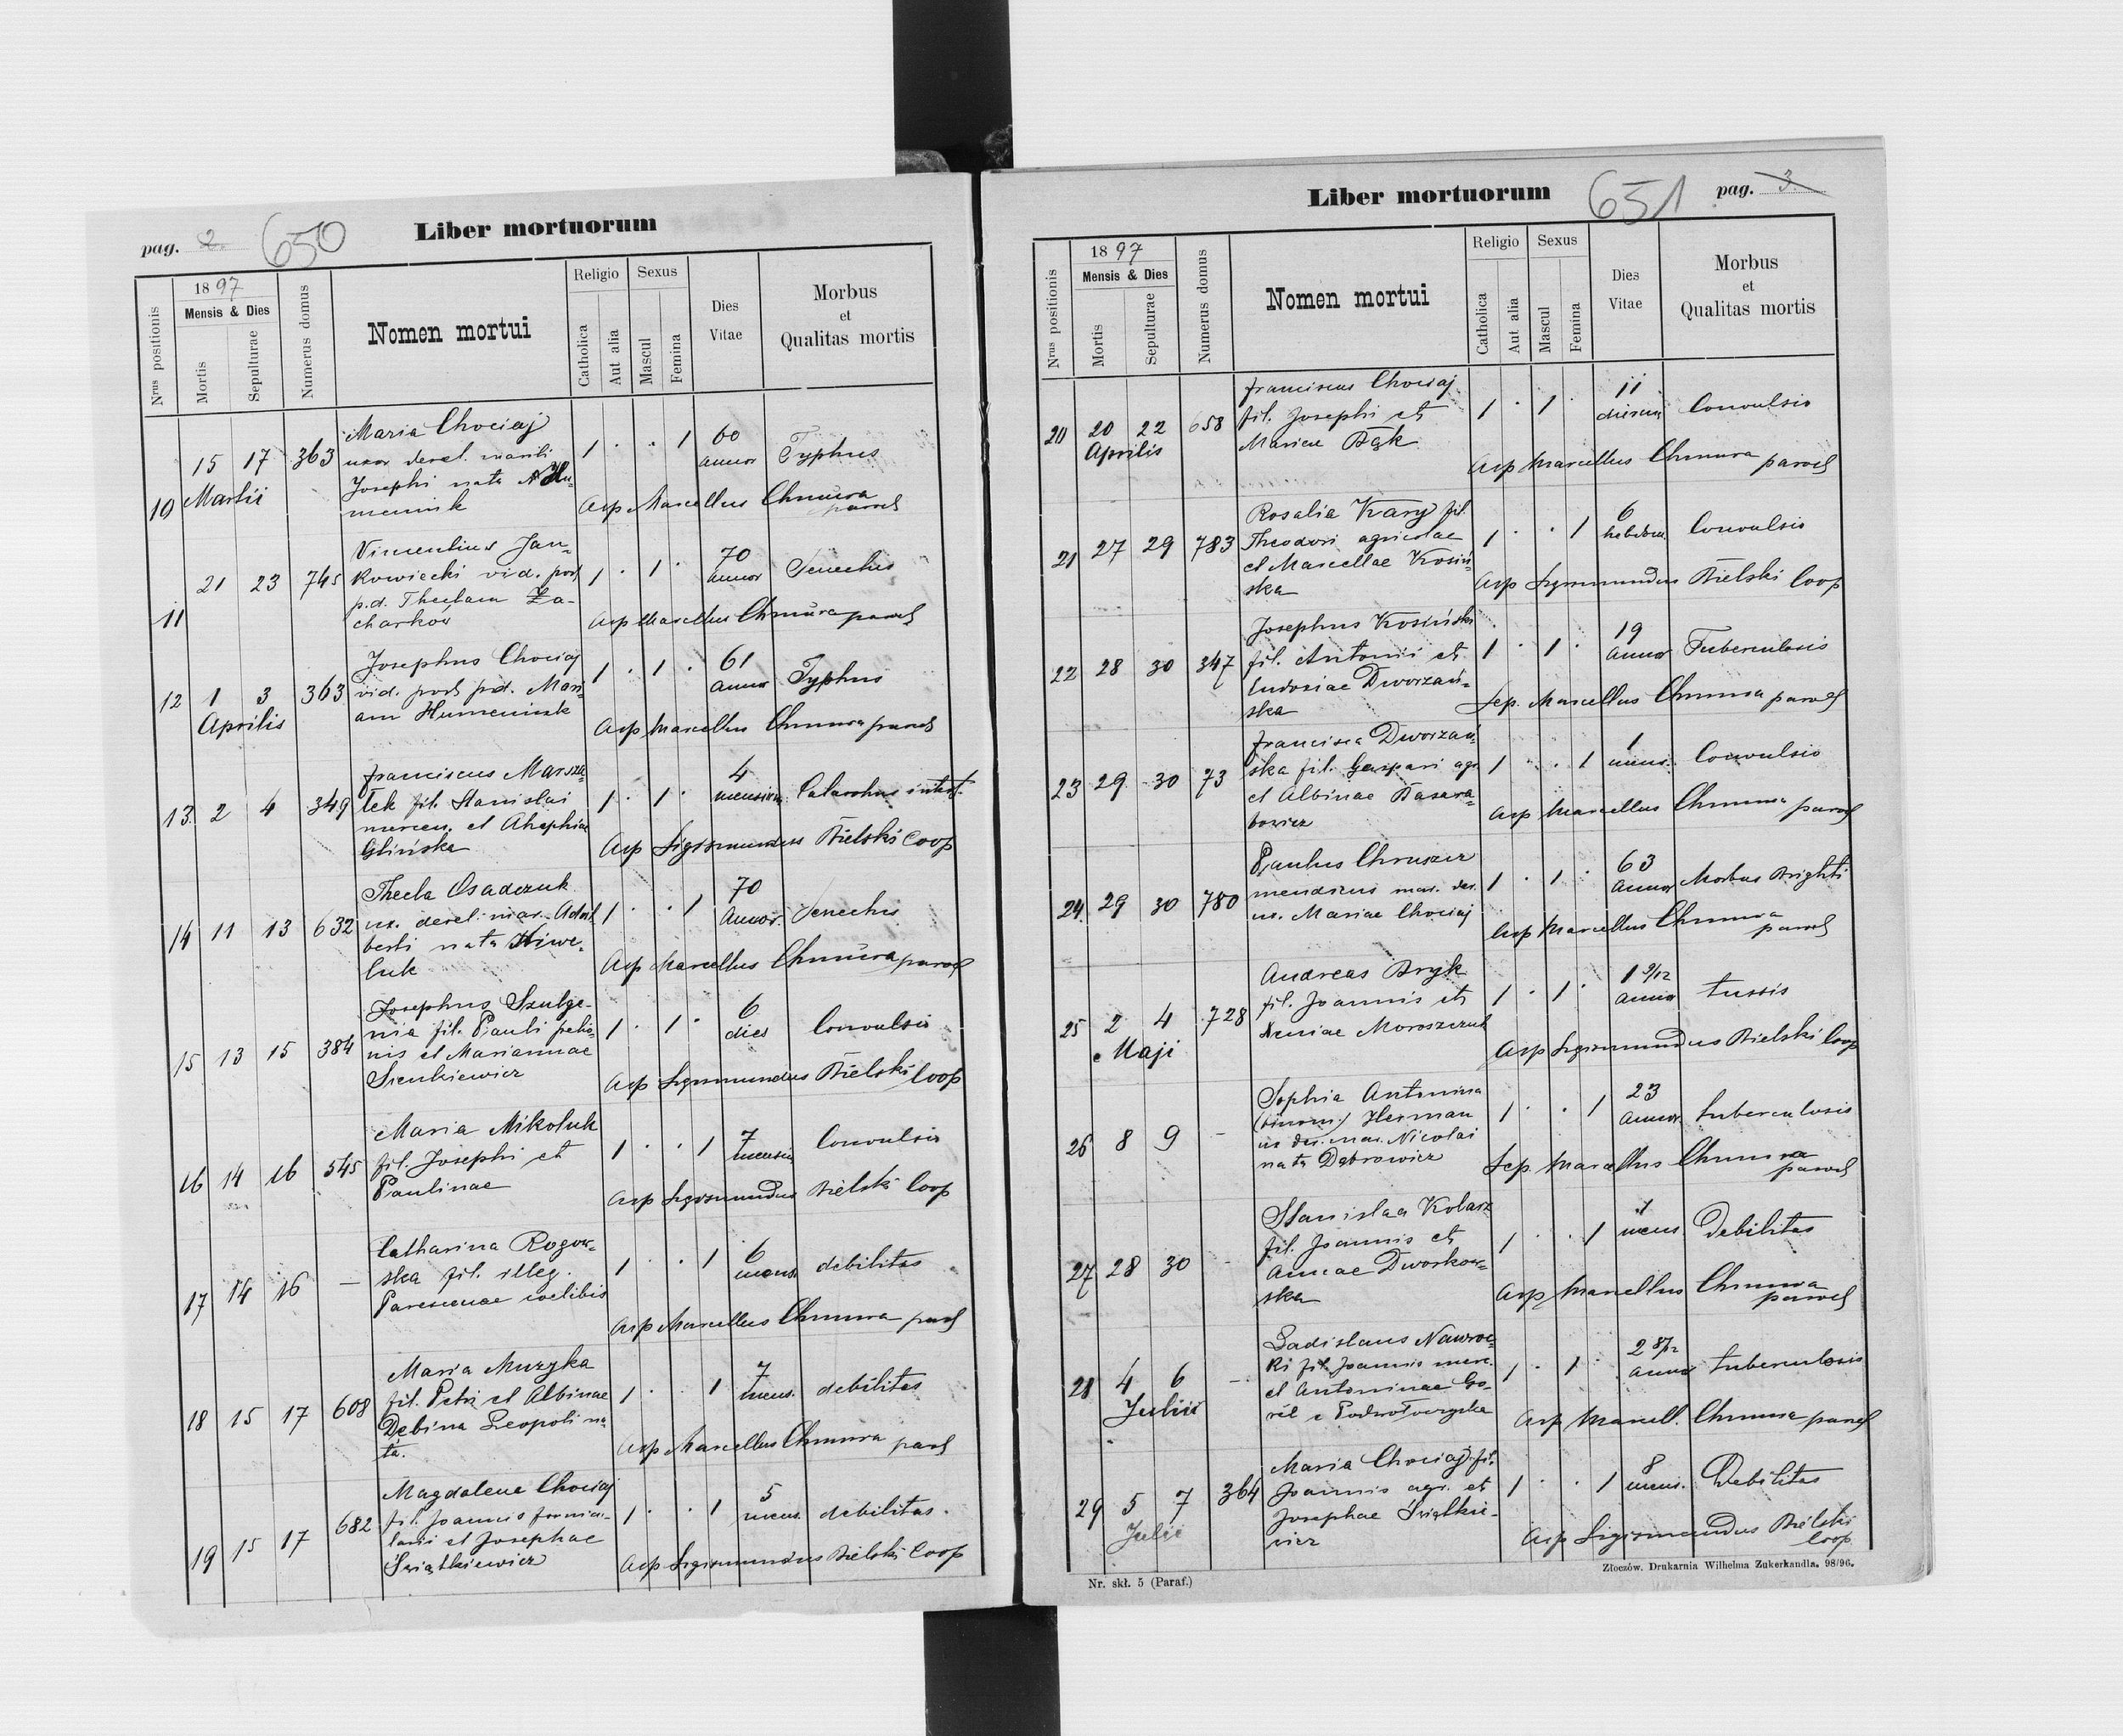 pag. 2. 650 Liber mortuorum
Nrus positionis
1897
Mensis & Dies
Mortis
Sepulturae
Numerus domus
Nomen mortui
Religio
Catholica
Aut alia
Sexus
Mascul
Femina
Dies
Vitae
Morbus
et
Qualitas mortis
10 15 17 363 Maria Chociaj 1 . . 1 60 Typhus
Martii uxor derel. mariti annor
Josephi nata Hu-
meniuk Asp Marcellus Chmura paroch
11 21 23 745 Vincentius Jan- 1 . 1 . 70 Senectus
kowiecki vid. post annor
p.d. Theclam Za-
charków Asp Marcellus Chmura paroch
12 1 3 363 Josephus Chociaj 1 . 1 . 61 Typhus
Aprilis vid. post p.d. Mari- annor
am Humeniuk Asp Marcellus Chmura paroch
13. 2 4 349 Franciscus Marsza- 1 . 1 . 4 Catarrhus intest.
łek fil. Stanislai mensium
mercen. et
Glińska Asp Sigismundus Bielski Coop
14 11 13 632 Thecla Osadczuk 1 . . 1 70 Senectus
ux. derel. mar. Adal- Annor.
berti nata
luk Asp Marcellus Chmura paroch
15 13 15 384 Josephus Szulge- 1 . 1 . 6 Convulsio
nia fil. Pauli dies
nis et Mariannae
Sienkiewicz Asp Sigismundus Bielski Coop
16 14 16 545 Maria Mikoluk 1 . . 1 7 Convulsio
fil. Josephi et mensium
Paulinae Asp Sigismundus Bielski Coop
17 14 16 — Catharina Rogow- 1 . . 1 6 debilitas
ska fil. illeg. mens.
coelibis
Asp Marcellus Chmura paroch
18 15 17 608 Maria Muzyka 1 . . 1 7 debilitas
fil. Petri et Albinae mens.
Dębina Leopoli na-
ta. Asp Marcellus Chmura paroch
19 15 17 682 Magdalena Chociaj 1 . . 1 5 debilitas.
fil. Joannis mens.
et Josephae
Świątkiewicz Asp Sigismundus Bielski Coop
Liber mortuorum 651 pag. 3.
Nrus positionis
1897
Mensis & Dies
Mortis
Sepulturae
Numerus domus
Nomen mortui
Religio
Catholica
Aut alia
Sexus
Mascul
Femina
Dies
Vitae
Morbus
et
Qualitas mortis
20 20 22 658 Franciscus Chociaj 1 . 1 . 11 Convulsio
Aprilis fil. Josephi et dierum
Mariae Bąk Asp Marcellus Chmura paroch
21 27 29 783 Rosalia Krary fil. 1 . . 1 6 Convulsio
Theodori agricolae hebdom.
et Marcellae Kosiń-
ska Asp Sigismundus Bielski Coop
22 28 30 347 Josephus Kosiński 1 . 1 . 19 Tuberculosis
fil. Antonii et annor
Ludoviae Dworzań-
ska Sep. Marcellus Chmura paroch
23 29 30 73 Francisca Dworzań- 1 . . 1 1 Convulsio
ska fil. Gaspari agr. mens.
et Albinae Basara-
bowicz Asp Marcellus Chmura paroch
24. 29 30 780 Paulus Chruszcz 1 . 1 . 63 Morbus Brighti
mendicus mar. der. Annor
ux. Mariae Chociaj Asp Marcellus Chmura paroch
25 2 4 728 Andreas Bryk 1 . 1 . 1 9/12 tussis
Maji fil. Joannis et annor
Xeniae Moroszczuk Asp Sigismundus Bielski Coop
26 8 9 - Sophia Antonina 1 . . 1 23 tuberculosis
(binom.) Herman annor.
ux der. mar. Nicolai
nata Dąbrowicz Sep. Marcellus Chmura paroch
27 28 30 - Stanislaa Kolasz 1 . . 1 1 Debilitas
fil. Joannis et mens
Annae Dworkow-
ska Asp Marcellus Chmura paroch
28 4 6 - Ladislaus Nawroc- 1 . 1 . 2 8/12 tuberculosis
Julii ki fil. Joannis merc. annor
et Antoninae Go-
rél e Podwołoczyska Asp Marcell. Chmura paroch
29 5 7 364 Maria Chociaj fil. 1 . . 1 8 Debilitas
Julii Joannis agr. et mens.
Josephae Świątkie-
wicz Asp Sigismundus Bielski Coop
Nr. skł. 5 (Paraf.)
Złoczów. Drukarnia Wilhelma Zukerkandla. 98/96.